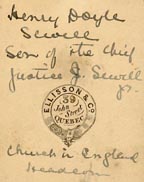 Henry Doyle
Sewell
Son of the Chief
Justice J. Sewell
ELLISSON & Co
39
John Street
QUEBEC
Church in England